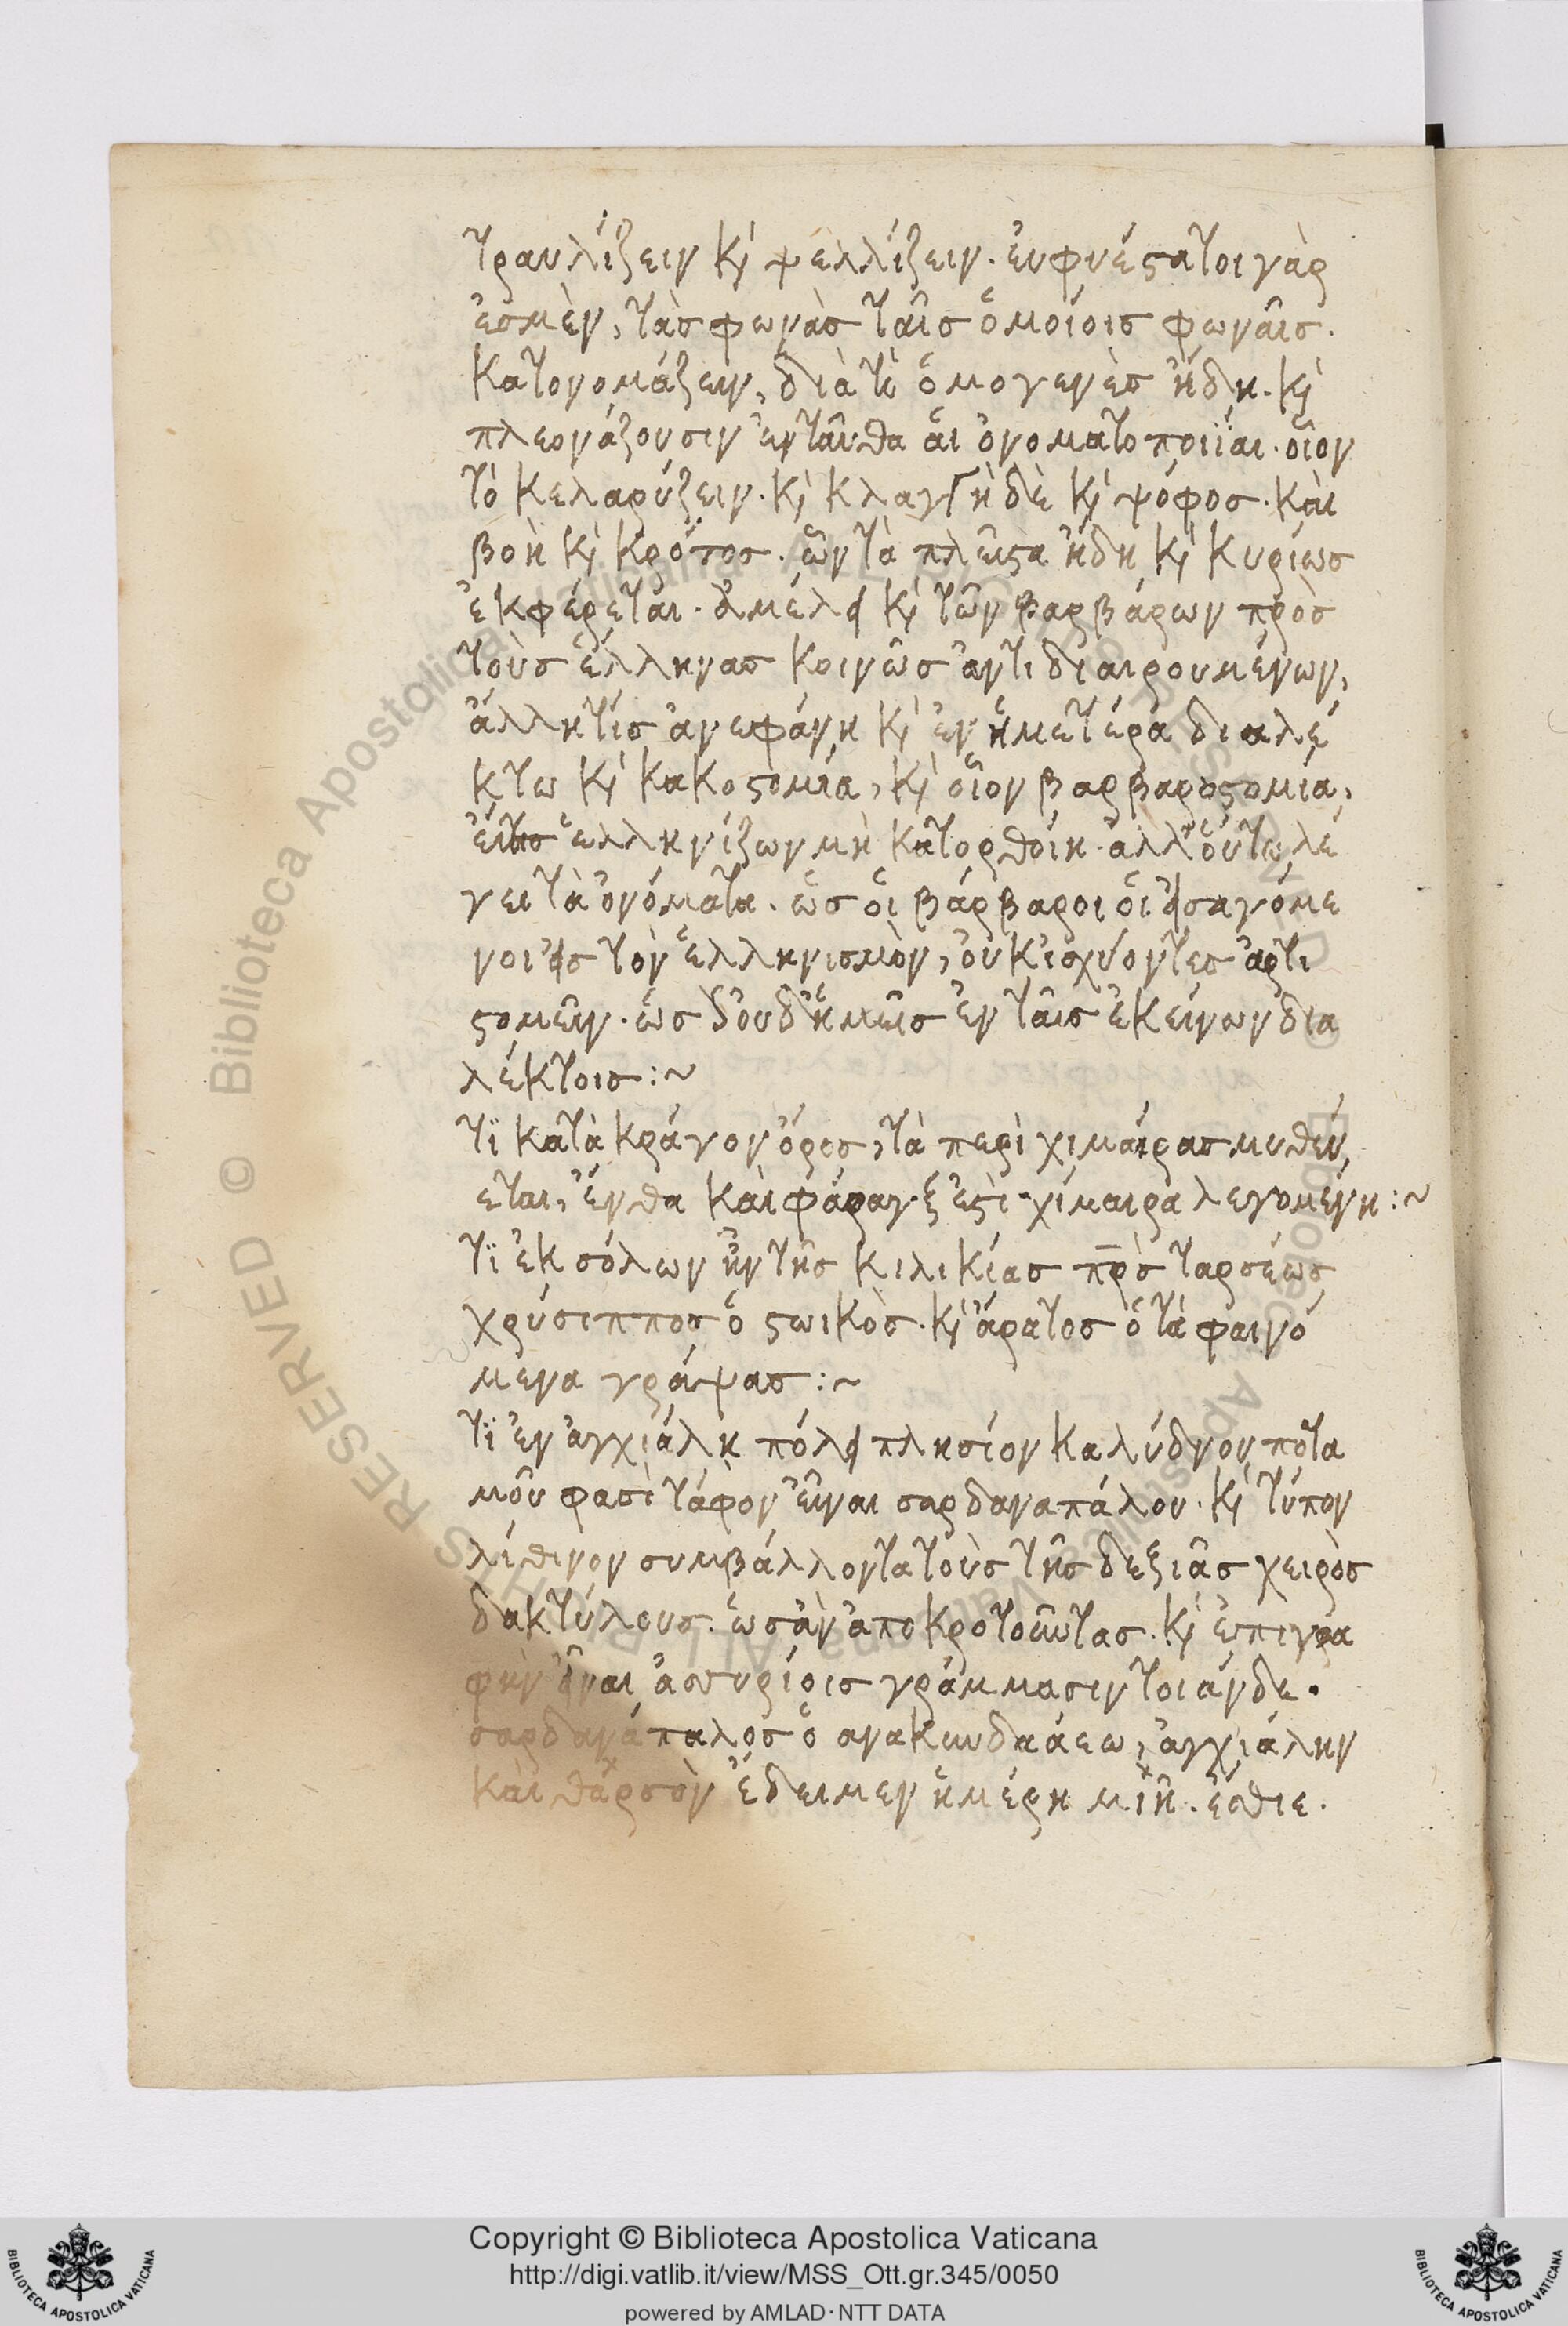 τραυλίζειν κ̀ ψελλίζειν. ἐυφυέϛατοι γὰρ
ἐσμὲν, τὰσ φωνὰσ ταῖσ ὁμοίοισ φωναῖσ.
κατονομάζειν, διὰ τὸ ὁμογενὲσ ἤδη. κ̀
πλεονάζουσιν ἐνταῦθα ἁι ὀνοματοποιΐαι. οἷον
τὸ κελαρύζειν. κ̀ κλαγγὴ δὲ κ̀ ψόφοσ. κὰι
βοὴ κ̀ κρότοσ. ὧν τὰ πλεῖϛα ἤδη κ̀ κυρίωσ
ἐκφέρεται. ἀμέλει κ̀ τῶν βαρβάρων πρὸσ
τοὺσ ἕλληνασ κοινῶσ ἀντιδιαιρουμένων,
ἄλλη τίσ ἀνεφάνη κ̀ ἐν ἡμετέρα διαλέ
κτω κ̀ κακοϛομία, κ̀ οἷον βαρβαροϛομία,
ἔι τισ ἑλληνίζων μὴ κατορθοίη. ἀλλ' ὅυτω λέ
γει τὰ ὀνόματα. ὡσ ὁι βάρβαροι ὁι εἰσαγόμε
νοι εἰσ τὸν ἑλληνισμὸν, ὀυκ ἰσχύοντεσ ἀρτι
ϛομεῖν. ὡσ δ' ὀυδ' ἡμεῖσ ἐν ταῖσ ἐκείνων δια
λέκτοισ :~
τϊ κατὰ κράγον ὄροσ, τὰ περὶ χιμαίρασ μυθέυ
εται, ἔνθα κὰι φάραγξ ἐϛὶ χίμαιρα λεγομένη :~
τϊ ἐκ σόλων ἦν τῆσ κιλικίασ πρὸσ ταρσέωσ
χρύσιπποσ ὁ ϛωικὸσ. κ̀ ἄρατοσ ὁ τὰ φαινό
μενα γράψασ :~
τϊ ἐν ἀγχιάλη πόλει πλησίον καλύδνου ποτα
μοῦ φασὶ τάφον εἶναι σαρδαναπάλου. κ̀ τύπον
λίθινον συμβάλλοντα τοὺσ τῆσ δεξιᾶσ χειρὸσ
δακτύλουσ. ὡσ ἀν ἀποκροτοῦντασ. κ̀ ἐπιγρα
φὴν εἶναι ἀσσυρίοισ γράμμασιν τοιάνδε.
σαρδανάπαλοσ ὁ ανακυνδαάεω, ἀγχιάλην
κὰι θαρσὸν ἔδειμεν ἡμέρη μιῆ. ἔσθιε.
Copyright © Biblioteca Apostolica Vaticana
http://digi.vatlib.it/view/MSS_Ott.gr.345/0050
powered by AMLAD · NTT DATA